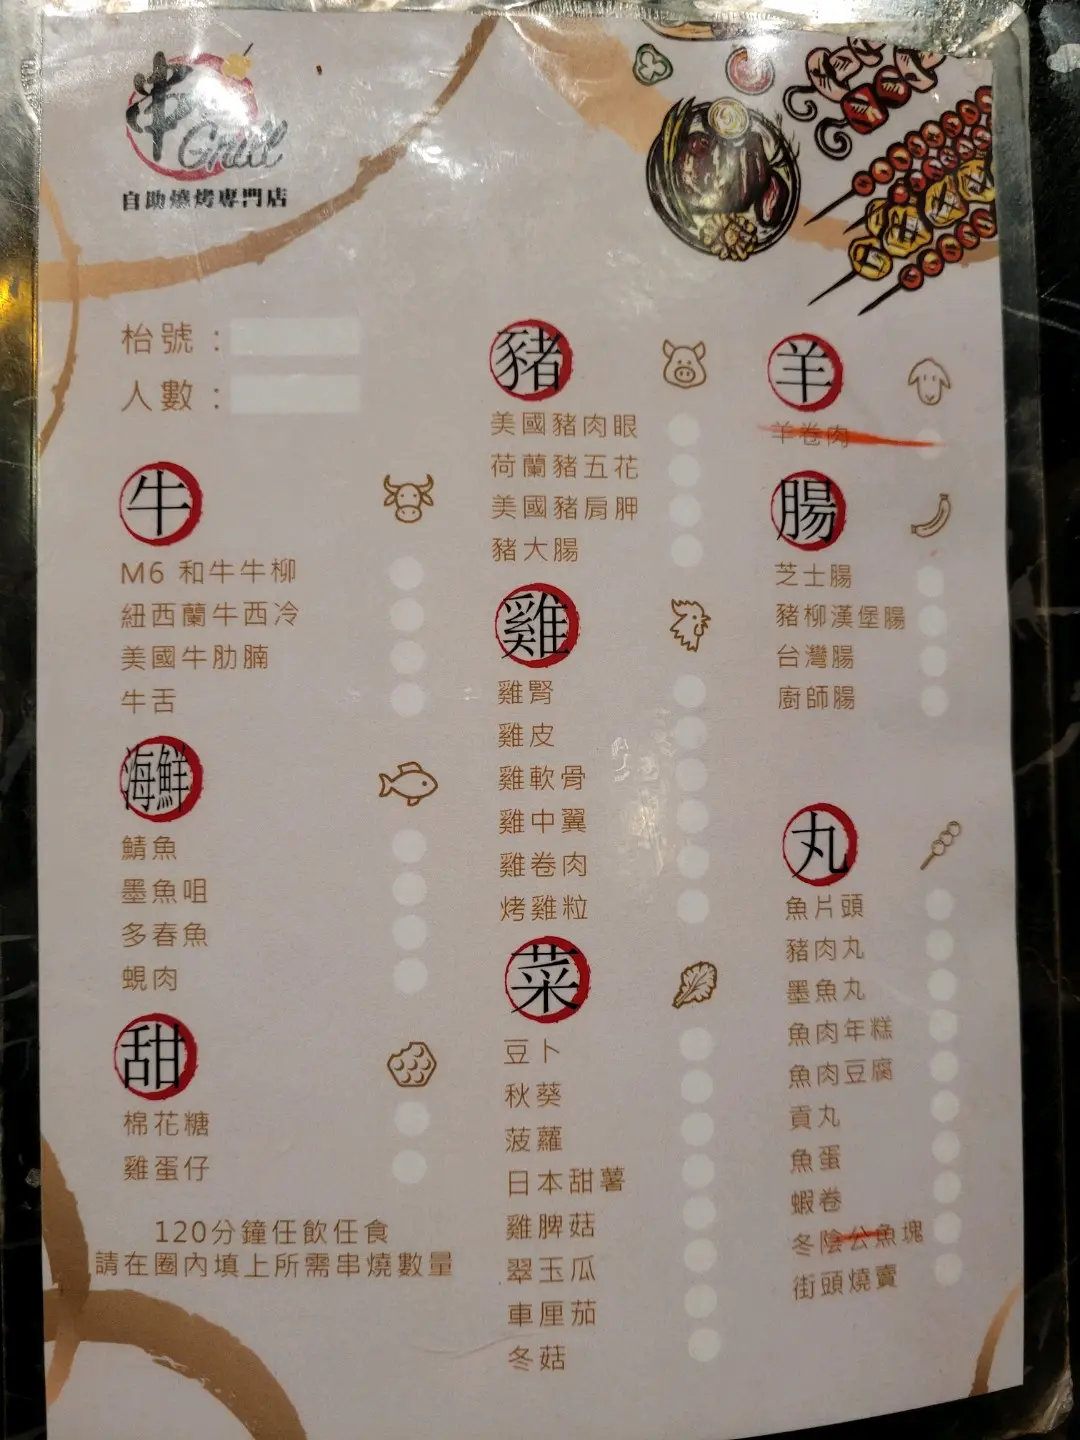 串
Grill
自助燒烤專門店
枱號：
人數：
牛
M6 和牛牛柳
紐西蘭牛西冷
美國牛肋腩
牛舌
海鮮
鯖魚
墨魚咀
多春魚
蜆肉
甜
棉花糖
雞蛋仔
120分鐘任飲任食
請在圈內填上所需串燒數量
豬
美國豬肉眼
荷蘭豬五花
美國豬肩胛
豬大腸
雞
雞腎
雞皮
雞軟骨
雞中翼
雞卷肉
烤雞粒
菜
豆卜
秋葵
菠蘿
日本甜薯
雞脾菇
翠玉瓜
車厘茄
冬菇
羊
羊卷肉
腸
芝士腸
豬柳漢堡腸
台灣腸
廚師腸
丸
魚片頭
豬肉丸
墨魚丸
魚肉年糕
魚肉豆腐
貢丸
魚蛋
蝦卷
冬陰公魚塊
街頭燒賣